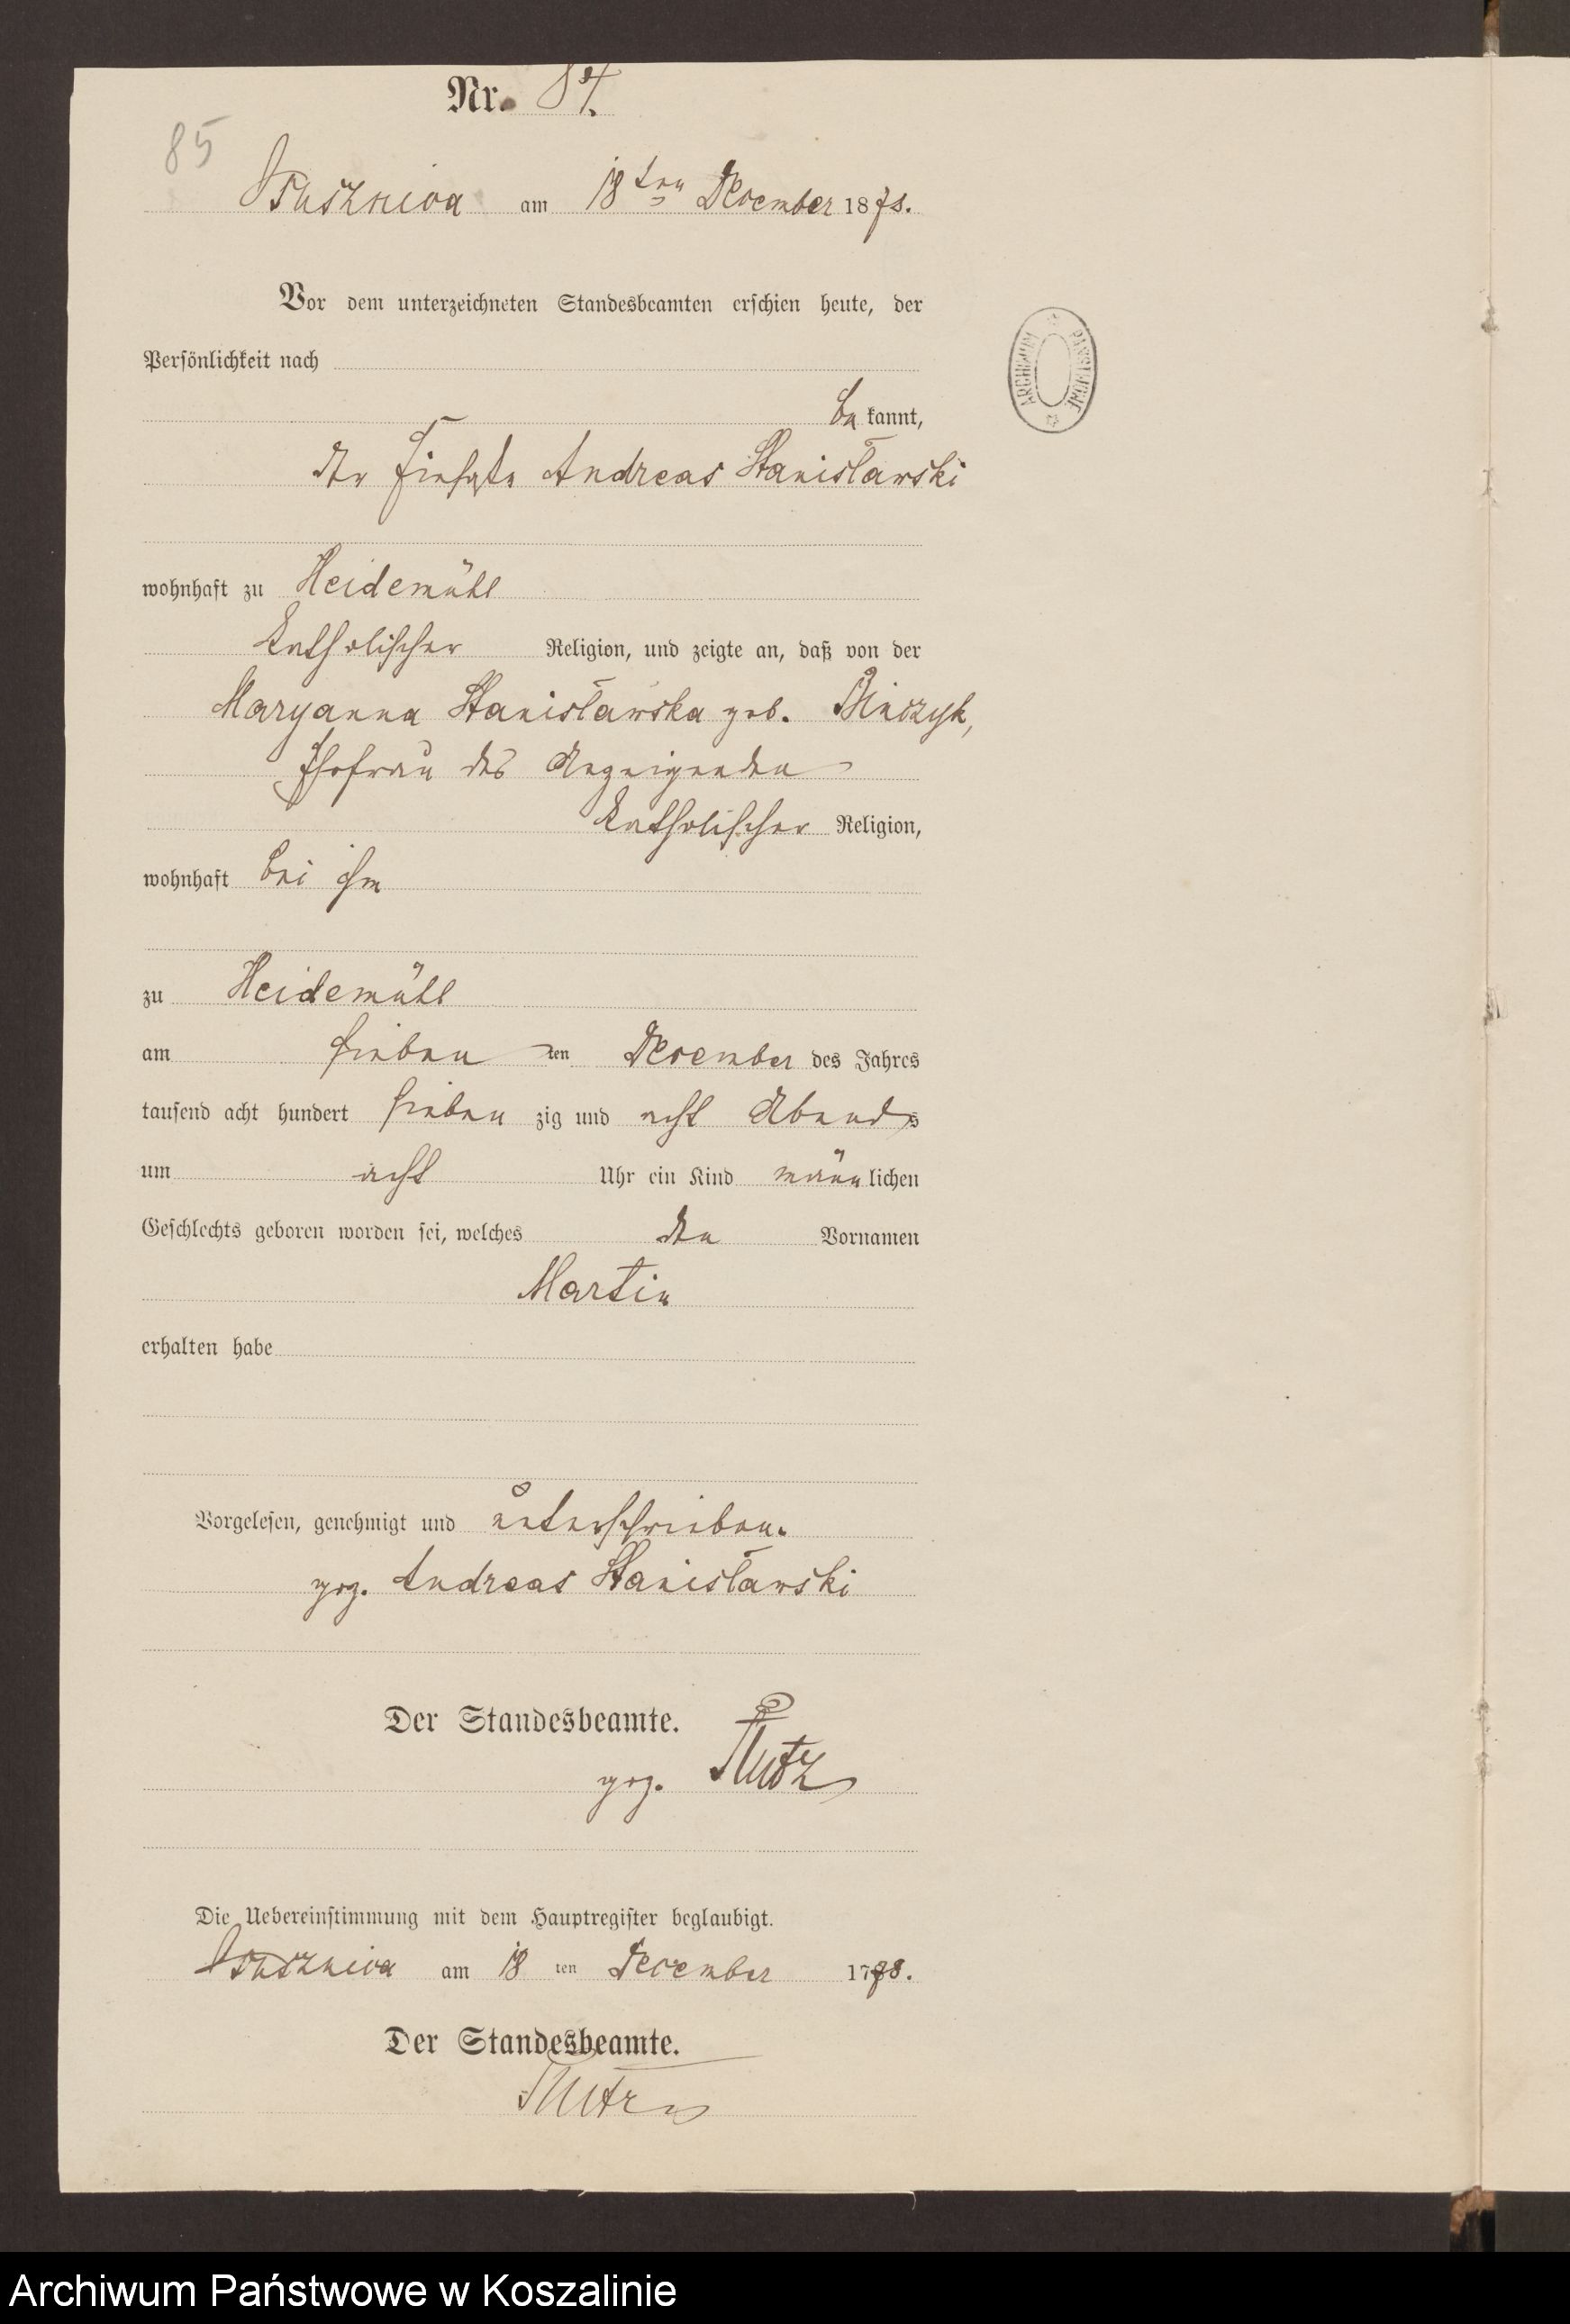 Nr. 84.
85
Ossusznica am 18ten December 1878.
Vor dem unterzeichneten Standesbeamten erschien heute, der
Persönlichkeit nach
be kannt,
der Andreas Stanisławski
wohnhaft zu Heidemühl
katholischer Religion, und zeigte an, daß von der
Maryanna Stanisławska geb. Binczyk,
Ehefrau des Anzeigenden
katholischer Religion,
wohnhaft bei ihm
zu Heidemühl
am sieben ten December des Jahres
tausend acht hundert sieben zig und acht Abends
um acht Uhr ein Kind männ lichen
Geschlechts geboren worden sei, welches den Vornamen
Martin
erhalten habe
Vorgelesen, genehmigt und unterschrieben.
gez. Andreas Stanisławski
Der Standesbeamte.
gez.
Die Uebereinstimmung mit dem Hauptregister beglaubigt.
Ossusznica am 18 ten December 1878.
Der Standesbeamte.
ARCHIWUM PAŃSTWOWE
Archiwum Państwowe w Koszalinie